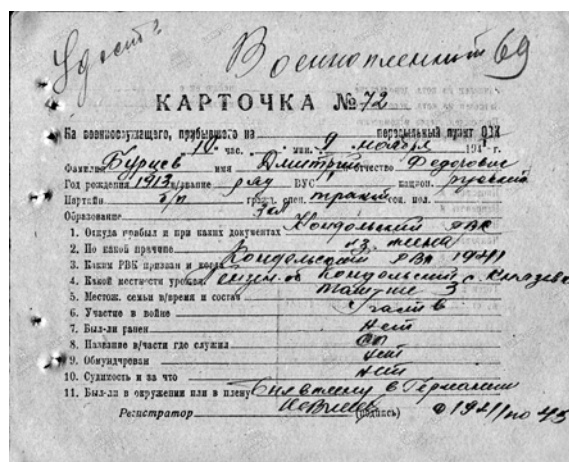 Военнопленный 69
КАРТОЧКА № 72
На военнослужащего, прибывшего на пересыльный пункт
10 час. мин. 9 ноября 194 г.
Фамилия Бурцев имя Дмитрий отчество Федорович
Год рождения 1913 в/звание ряд ВУС национ. русский
Партийн б/п гражд. спец. тракт соц. пол.
Образование 3 кл
1. Откуда прибыл и при каких документах Кондольский РВК
2. По какой причине из плена
3. Каким РВК призван и когда Кондольский РВК 1941
4. Какой местности урожен. Кондольский с. Князевка
5. Местож. семьи в/время и состав 3
6. Участие в войне Участв
7. Был-ли ранен Нет
8. Название в/части где служил СП
9. Обмундирован нет
10. Судимость и за что нет
11. Был-ли в окружении или в плену Был в плену в Германии
с 1941 по 45
Регистратор (подпись)